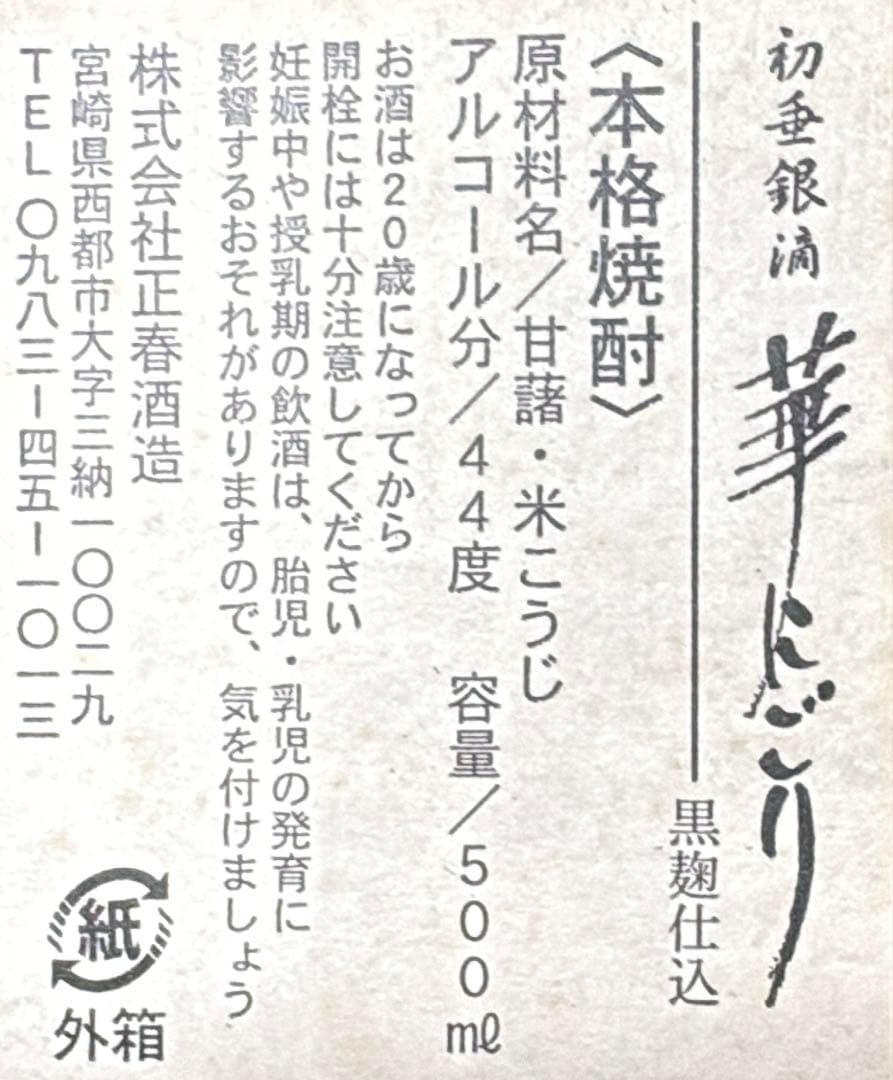 初垂銀滴 華にごり
黒麹仕込
〈本格焼酎〉
原材料名／甘藷・米こうじ
アルコール分／44度　容量／500㎖
お酒は20歳になってから
開栓には十分注意してください
妊娠中や授乳期の飲酒は、胎児・乳児の発育に
影響するおそれがありますので、気を付けましょう
株式会社正春酒造
宮崎県西都市大字三納一〇〇二九
TEL〇九八三ー四五ー一〇一三
紙
外箱